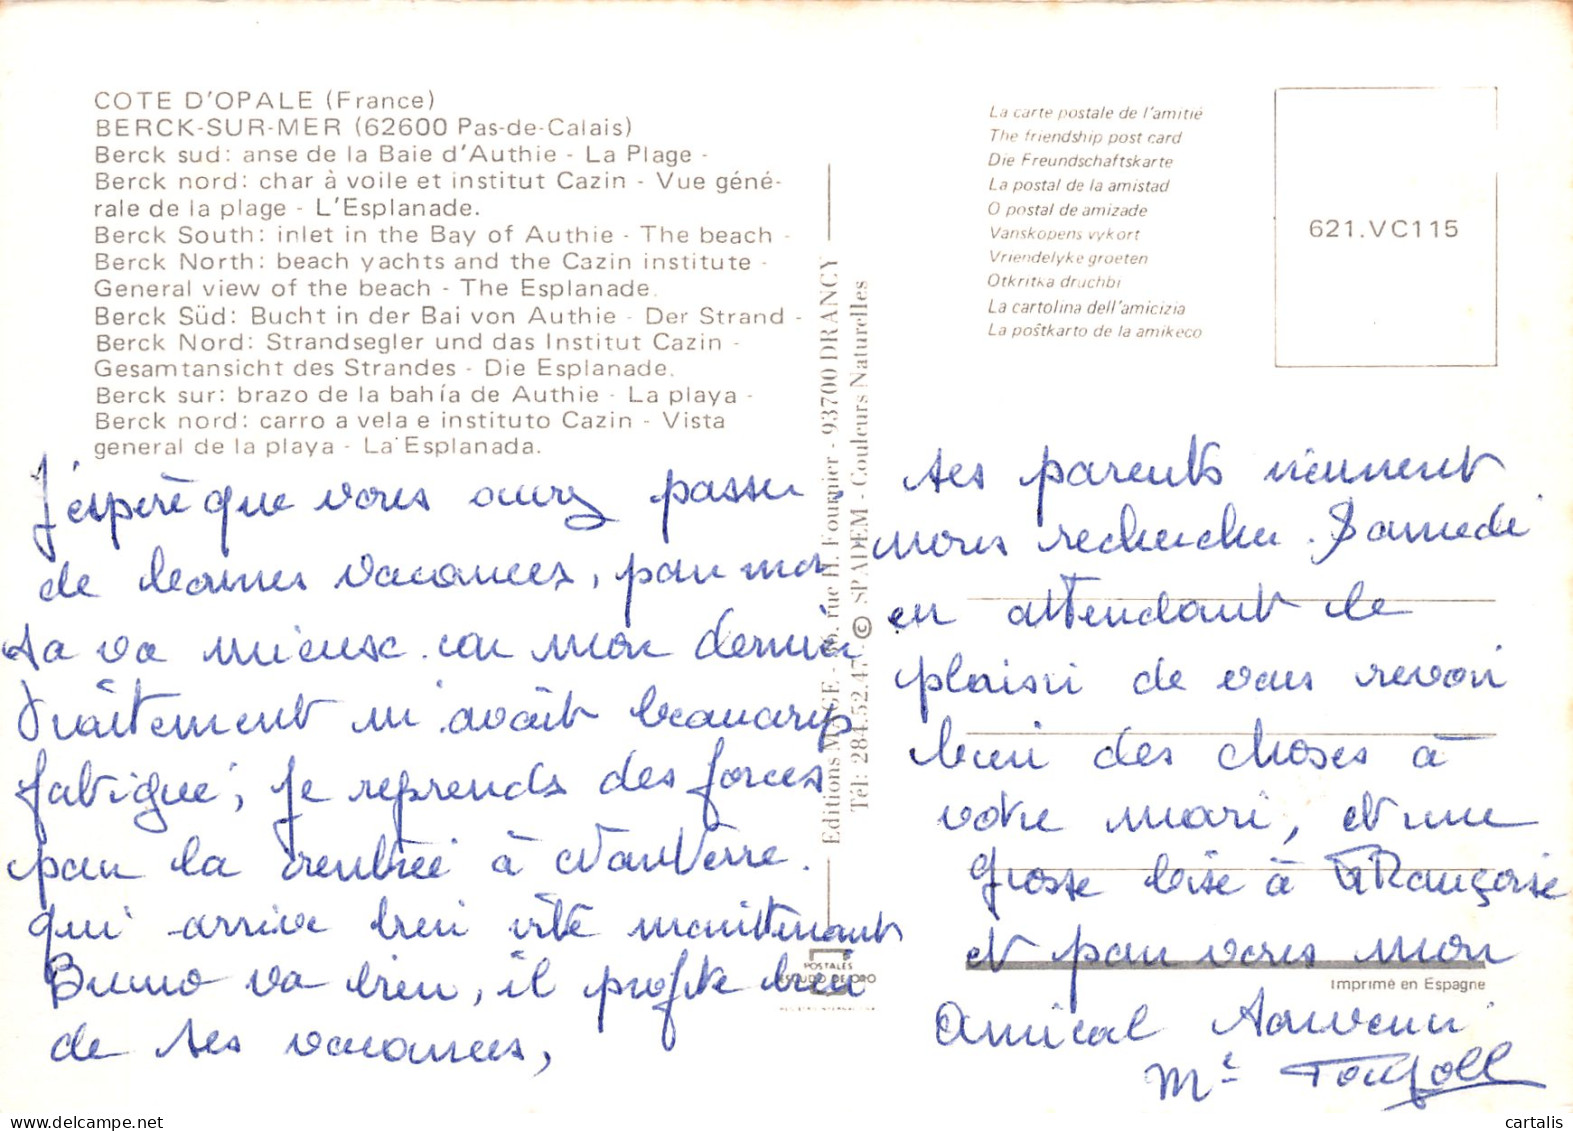 COTE D'OPALE (France)
BERCK-SUR-MER (62600 Pas-de-Calais)
Berck sud: anse de la Baie d'Authie - La Plage -
Berck nord: char à voile et institut Cazin - Vue géné-
rale de la plage - L'Esplanade.
Berck South: inlet in the Bay of Authie - The beach -
Berck North: beach yachts and the Cazin institute -
General view of the beach - The Esplanade.
Berck Süd: Bucht in der Bai von Authie - Der Strand -
Berck Nord: Strandsegler und das Institut Cazin -
Gesamtansicht des Strandes - Die Esplanade.
Berck sur: brazo de la bahía de Authie - La playa -
Berck nord: carro a vela e instituto Cazin - Vista
general de la playa - La Esplanada.
J'espère que vous aurez passer
de bonnes vacances, pour moi
sa va mieusc. car mon dernier
Traîtement m'avait beaucoup
fatigué, je reprends des forces
pour la rentrée à
qui arrive bien vite maintenant
Bruno va bien, il profite bien
de ses vacances,
Editions MAGE - rue H. Fournier - 93700 DRANCY
Tél: 284.52.47 - © SPADEM - Couleurs Naturelles
La carte postale de l'amitié
The friendship post card
Die Freundschaftskarte
La postal de la amistad
O postal de amizade
Vanskopens vykort
Vriendelyke groeten
Otkritka druchbi
La cartolina dell'amicizia
La poŝtkarto de la amikeco
621.VC115
ses parents viennent
nous rechercher. Samedi
en attendant le
plaisir de vous revoir
bien des choses à
votre mari, et une
grosse bise à Françoise
et pour vous mon
amical souvenir
Me
POSTALES
ESCUDO DE ORO
Imprimé en Espagne
cartalis
www.delcampe.net